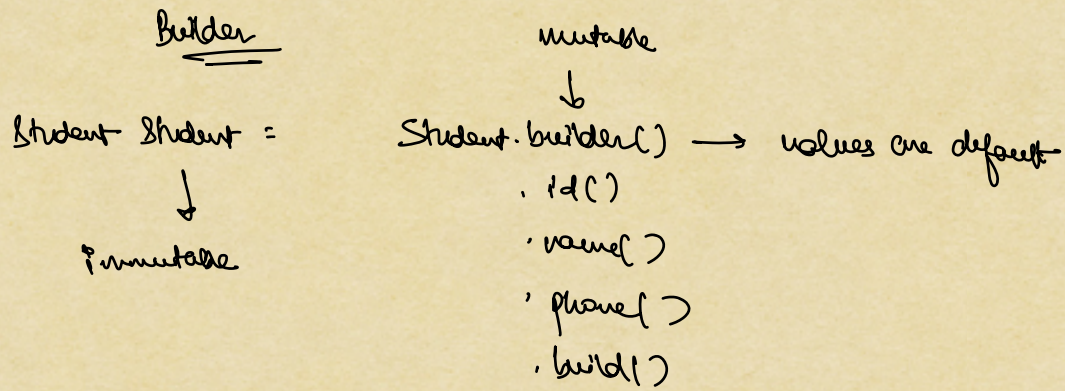 Builder
mutable
Student Student = Student.builder() → values are default
immutable
.id()
.name()
.phone()
.build()